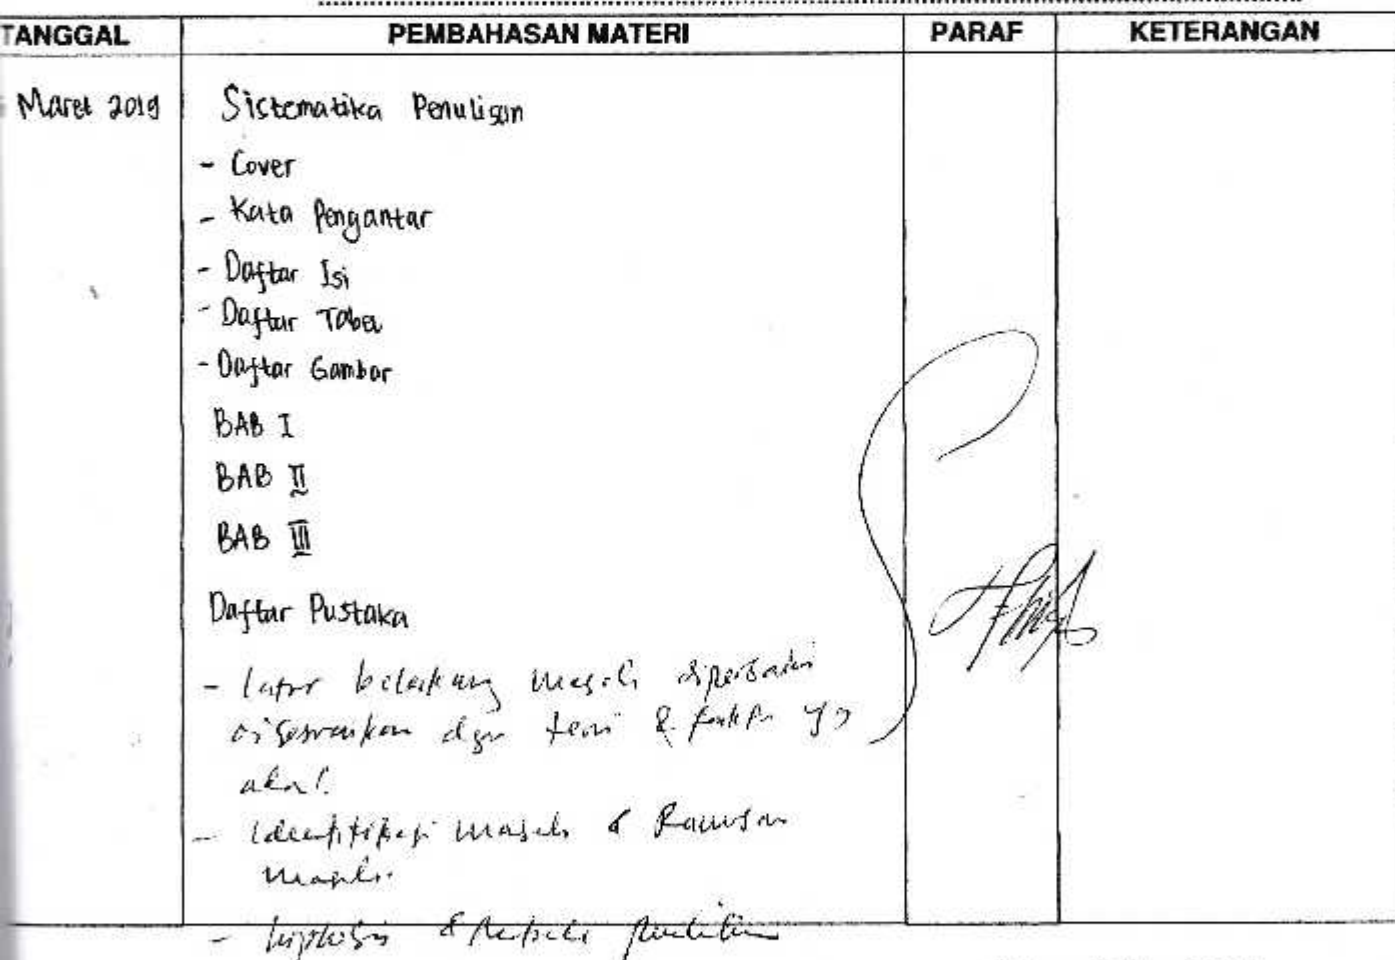 TANGGAL PEMBAHASAN MATERI PARAF KETERANGAN
Maret 2019 Sistematika Penulisan
- Cover
- Kata Pengantar
- Daftar Isi
- Daftar Tabel
- Daftar Gambar
BAB I
BAB II
BAB III
Daftar Pustaka
- latar belakang masalah diperbaiki
disesuaikan dgn teori & yg
- Identifikasi masalah & Rumusan
masalah.
- hipotesis & penelitian